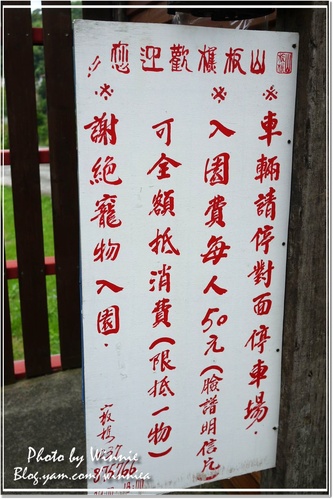 山板樵歡迎您
※車輛請停對面停車場.
※入園費每人50元(臉譜明信片)
可全額抵消費(限抵一物)
※謝絕寵物入園.
037
875766
Photo by Winnie
Blog.yam.com/winnica